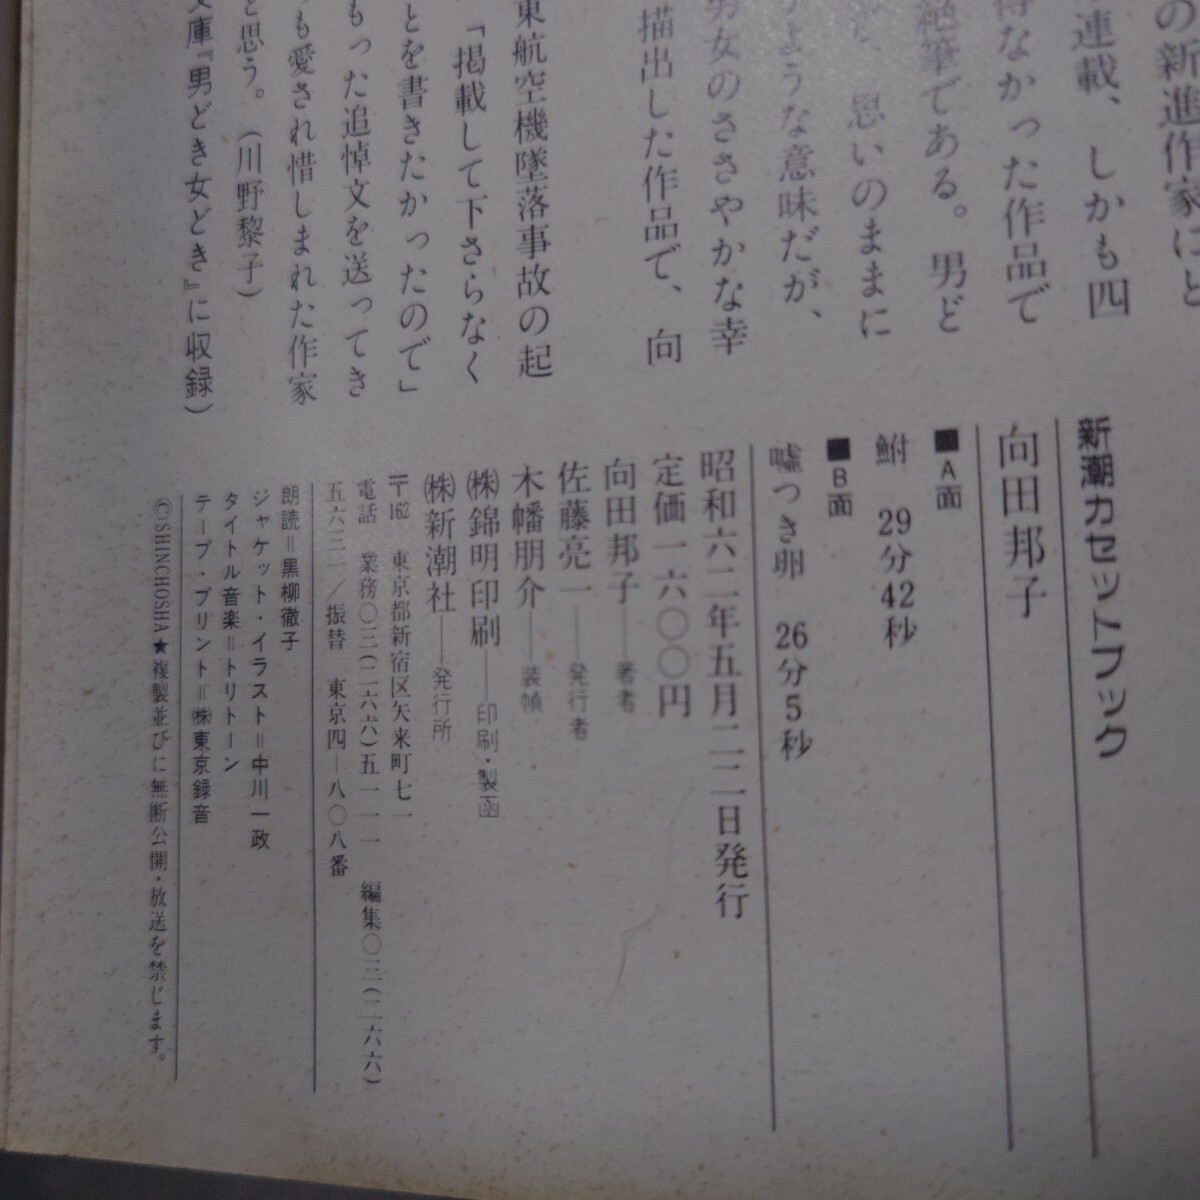 の新進作家にと
連載、しかも四
得なかった作品で
絶筆である。男ど
思いのままに
ような意味だが、
男女のささやかな幸
描出した作品で、向
東航空機墜落事故の起
「掲載して下さらなく
とを書きたかったので」
もった追悼文を送ってき
も愛され惜しまれた作家
と思う。(川野黎子)
文庫『男どき女どき』に収録)
新潮カセットブック
向田邦子
■A面
鮒 29分42秒
■B面
嘘つき卵 26分5秒
昭和六二年五月二二日発行
定価一六〇〇円
向田邦子——著者
佐藤亮一——発行者
木幡朋介——装幀
㈱錦明印刷——印刷・製函
㈱新潮社——発行所
〒162 東京都新宿区矢来町七一
電話 業務〇三(二六六)五一一一 編集〇三(二六六)
五六三一／振替 東京四—八〇八番
朗読＝黒柳徹子
ジャケット・イラスト＝中川一政
タイトル音楽＝トリトーン
テープ・プリント＝㈱東京録音
©SHINCHOSHA★複製並びに無断公開・放送を禁じます。